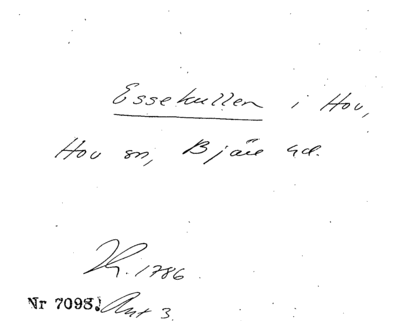 Essekullen i Hov,
Hov sn, Bjäre hd.
1786.
Nr 7098. Ant 3.